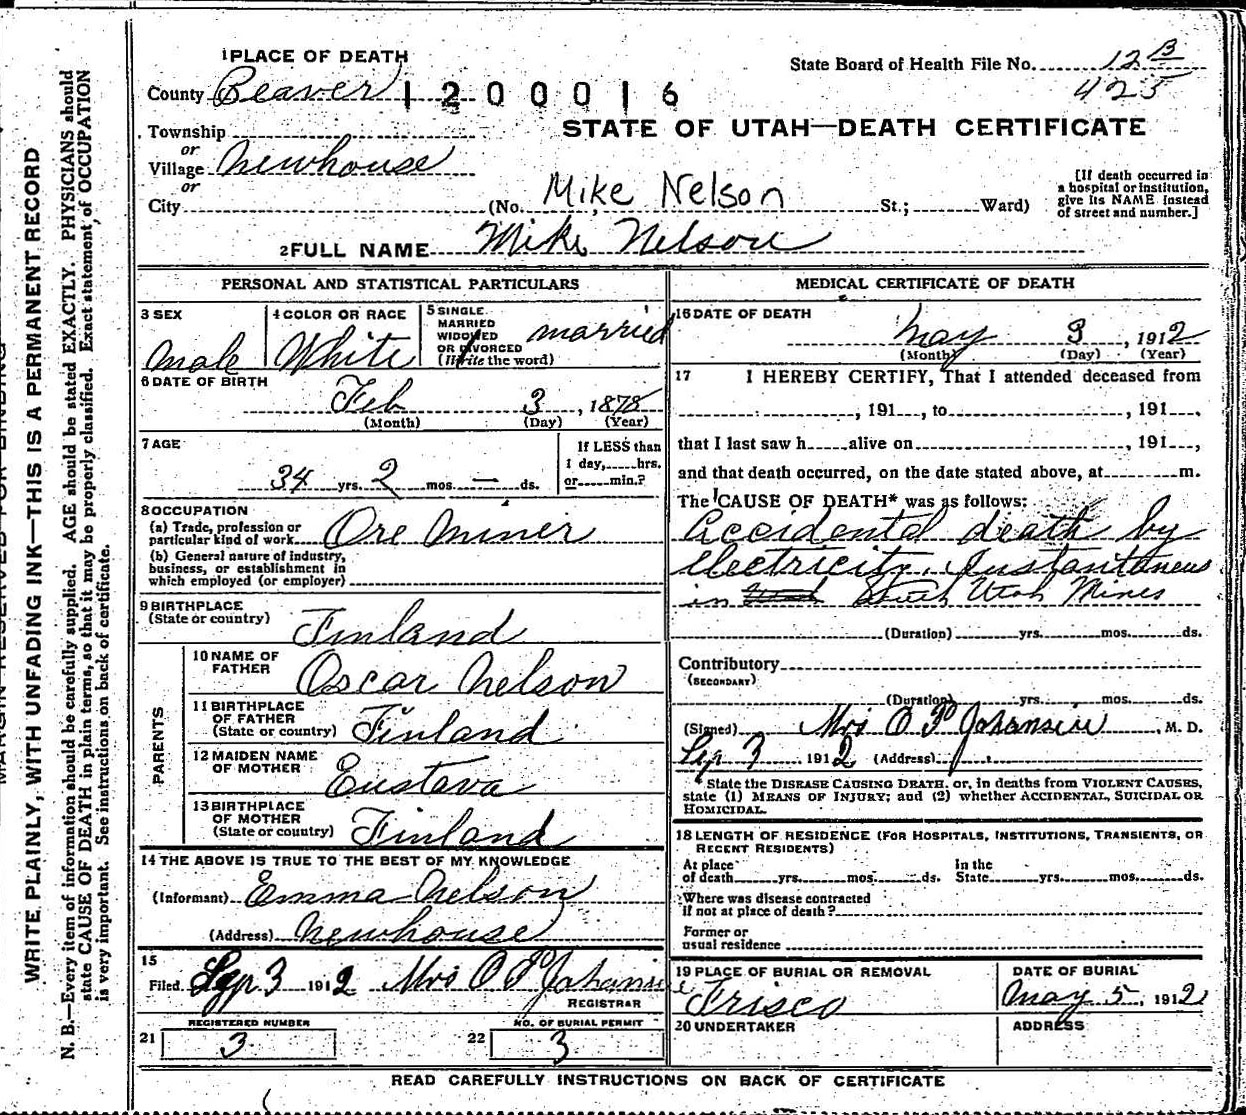 1 PLACE OF DEATH
State Board of Health File No. 12 B
425
County Beaver 1200016
STATE OF UTAH—DEATH CERTIFICATE
Township
or
Village Newhouse
or
City (No. Mike Nelson St.; Ward)
[If death occurred in
a hospital or institution,
give its NAME instead
of street and number.]
2 FULL NAME Mike Nelson
PERSONAL AND STATISTICAL PARTICULARS
3 SEX
Male
4 COLOR OR RACE
White
5 SINGLE
MARRIED
WIDOWED
OR DIVORCED
(Write the word)
married
6 DATE OF BIRTH
Feb 3, 1878
(Month) (Day) (Year)
7 AGE
34 yrs. 2 mos. — ds.
If LESS than
1 day, hrs.
or min.?
8 OCCUPATION
(a) Trade, profession or
particular kind of work Ore Miner
(b) General nature of industry,
business, or establishment in
which employed (or employer)
9 BIRTHPLACE
(State or country) Finland
PARENTS
10 NAME OF
FATHER Oscar Nelson
11 BIRTHPLACE
OF FATHER
(State or country) Finland
12 MAIDEN NAME
OF MOTHER Eustava
13 BIRTHPLACE
OF MOTHER
(State or country) Finland
14 THE ABOVE IS TRUE TO THE BEST OF MY KNOWLEDGE
(Informant) Emma Nelson
(Address) Newhouse
15
Filed Sep 3 1912 Mrs O P Johansen
REGISTRAR
REGISTERED NUMBER
21 3
NO. OF BURIAL PERMIT
22 3
MEDICAL CERTIFICATE OF DEATH
16 DATE OF DEATH
May 3, 1912
(Month) (Day) (Year)
17 I HEREBY CERTIFY, That I attended deceased from
, 191 , to , 191 ,
that I last saw h alive on , 191 ,
and that death occurred, on the date stated above, at m.
The CAUSE OF DEATH* was as follows:
Accidental death by
Electricity. Instantaneus
in South Utah Mines
(Duration) yrs. mos. ds.
Contributory
(SECONDARY)
(Duration) yrs. mos. ds.
(Signed) Mrs O P Johansen, M. D.
Sep 3 1912 (Address)
* State the DISEASE CAUSING DEATH, or, in deaths from VIOLENT CAUSES,
state (1) MEANS OF INJURY; and (2) whether ACCIDENTAL, SUICIDAL OR
HOMICIDAL.
18 LENGTH OF RESIDENCE (FOR HOSPITALS, INSTITUTIONS, TRANSIENTS, OR
RECENT RESIDENTS)
At place
of death yrs. mos. ds.
In the
State yrs. mos. ds.
Where was disease contracted
if not at place of death?
Former or
usual residence
19 PLACE OF BURIAL OR REMOVAL
Frisco
DATE OF BURIAL
May 5, 1912
20 UNDERTAKER
ADDRESS
READ CAREFULLY INSTRUCTIONS ON BACK OF CERTIFICATE
MARGIN RESERVED FOR BINDING
WRITE PLAINLY, WITH UNFADING INK—THIS IS A PERMANENT RECORD
N. B.—Every item of information should be carefully supplied. AGE should be stated EXACTLY. PHYSICIANS should
state CAUSE OF DEATH in plain terms, so that it may be properly classified. Exact statement of OCCUPATION
is very important. See instructions on back of certificate.